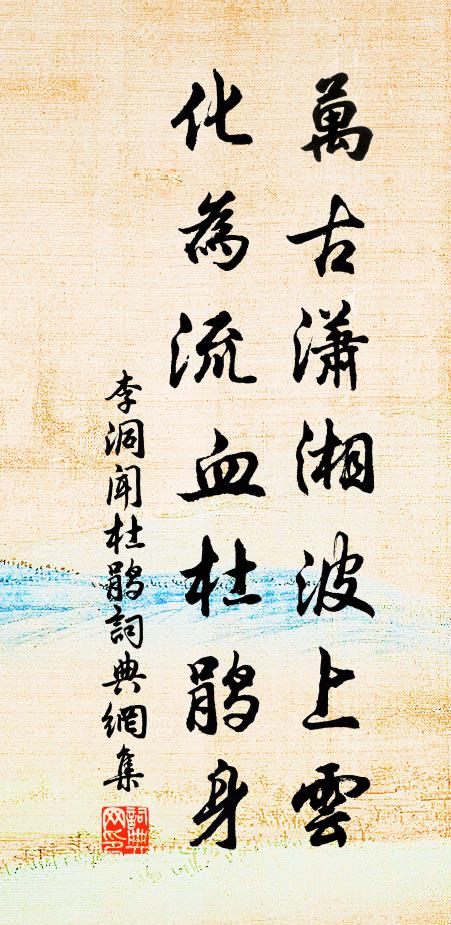 萬古瀟湘波上雲
化為流血杜鵑身
李洞聞杜鵑詞典網集
詞典網印